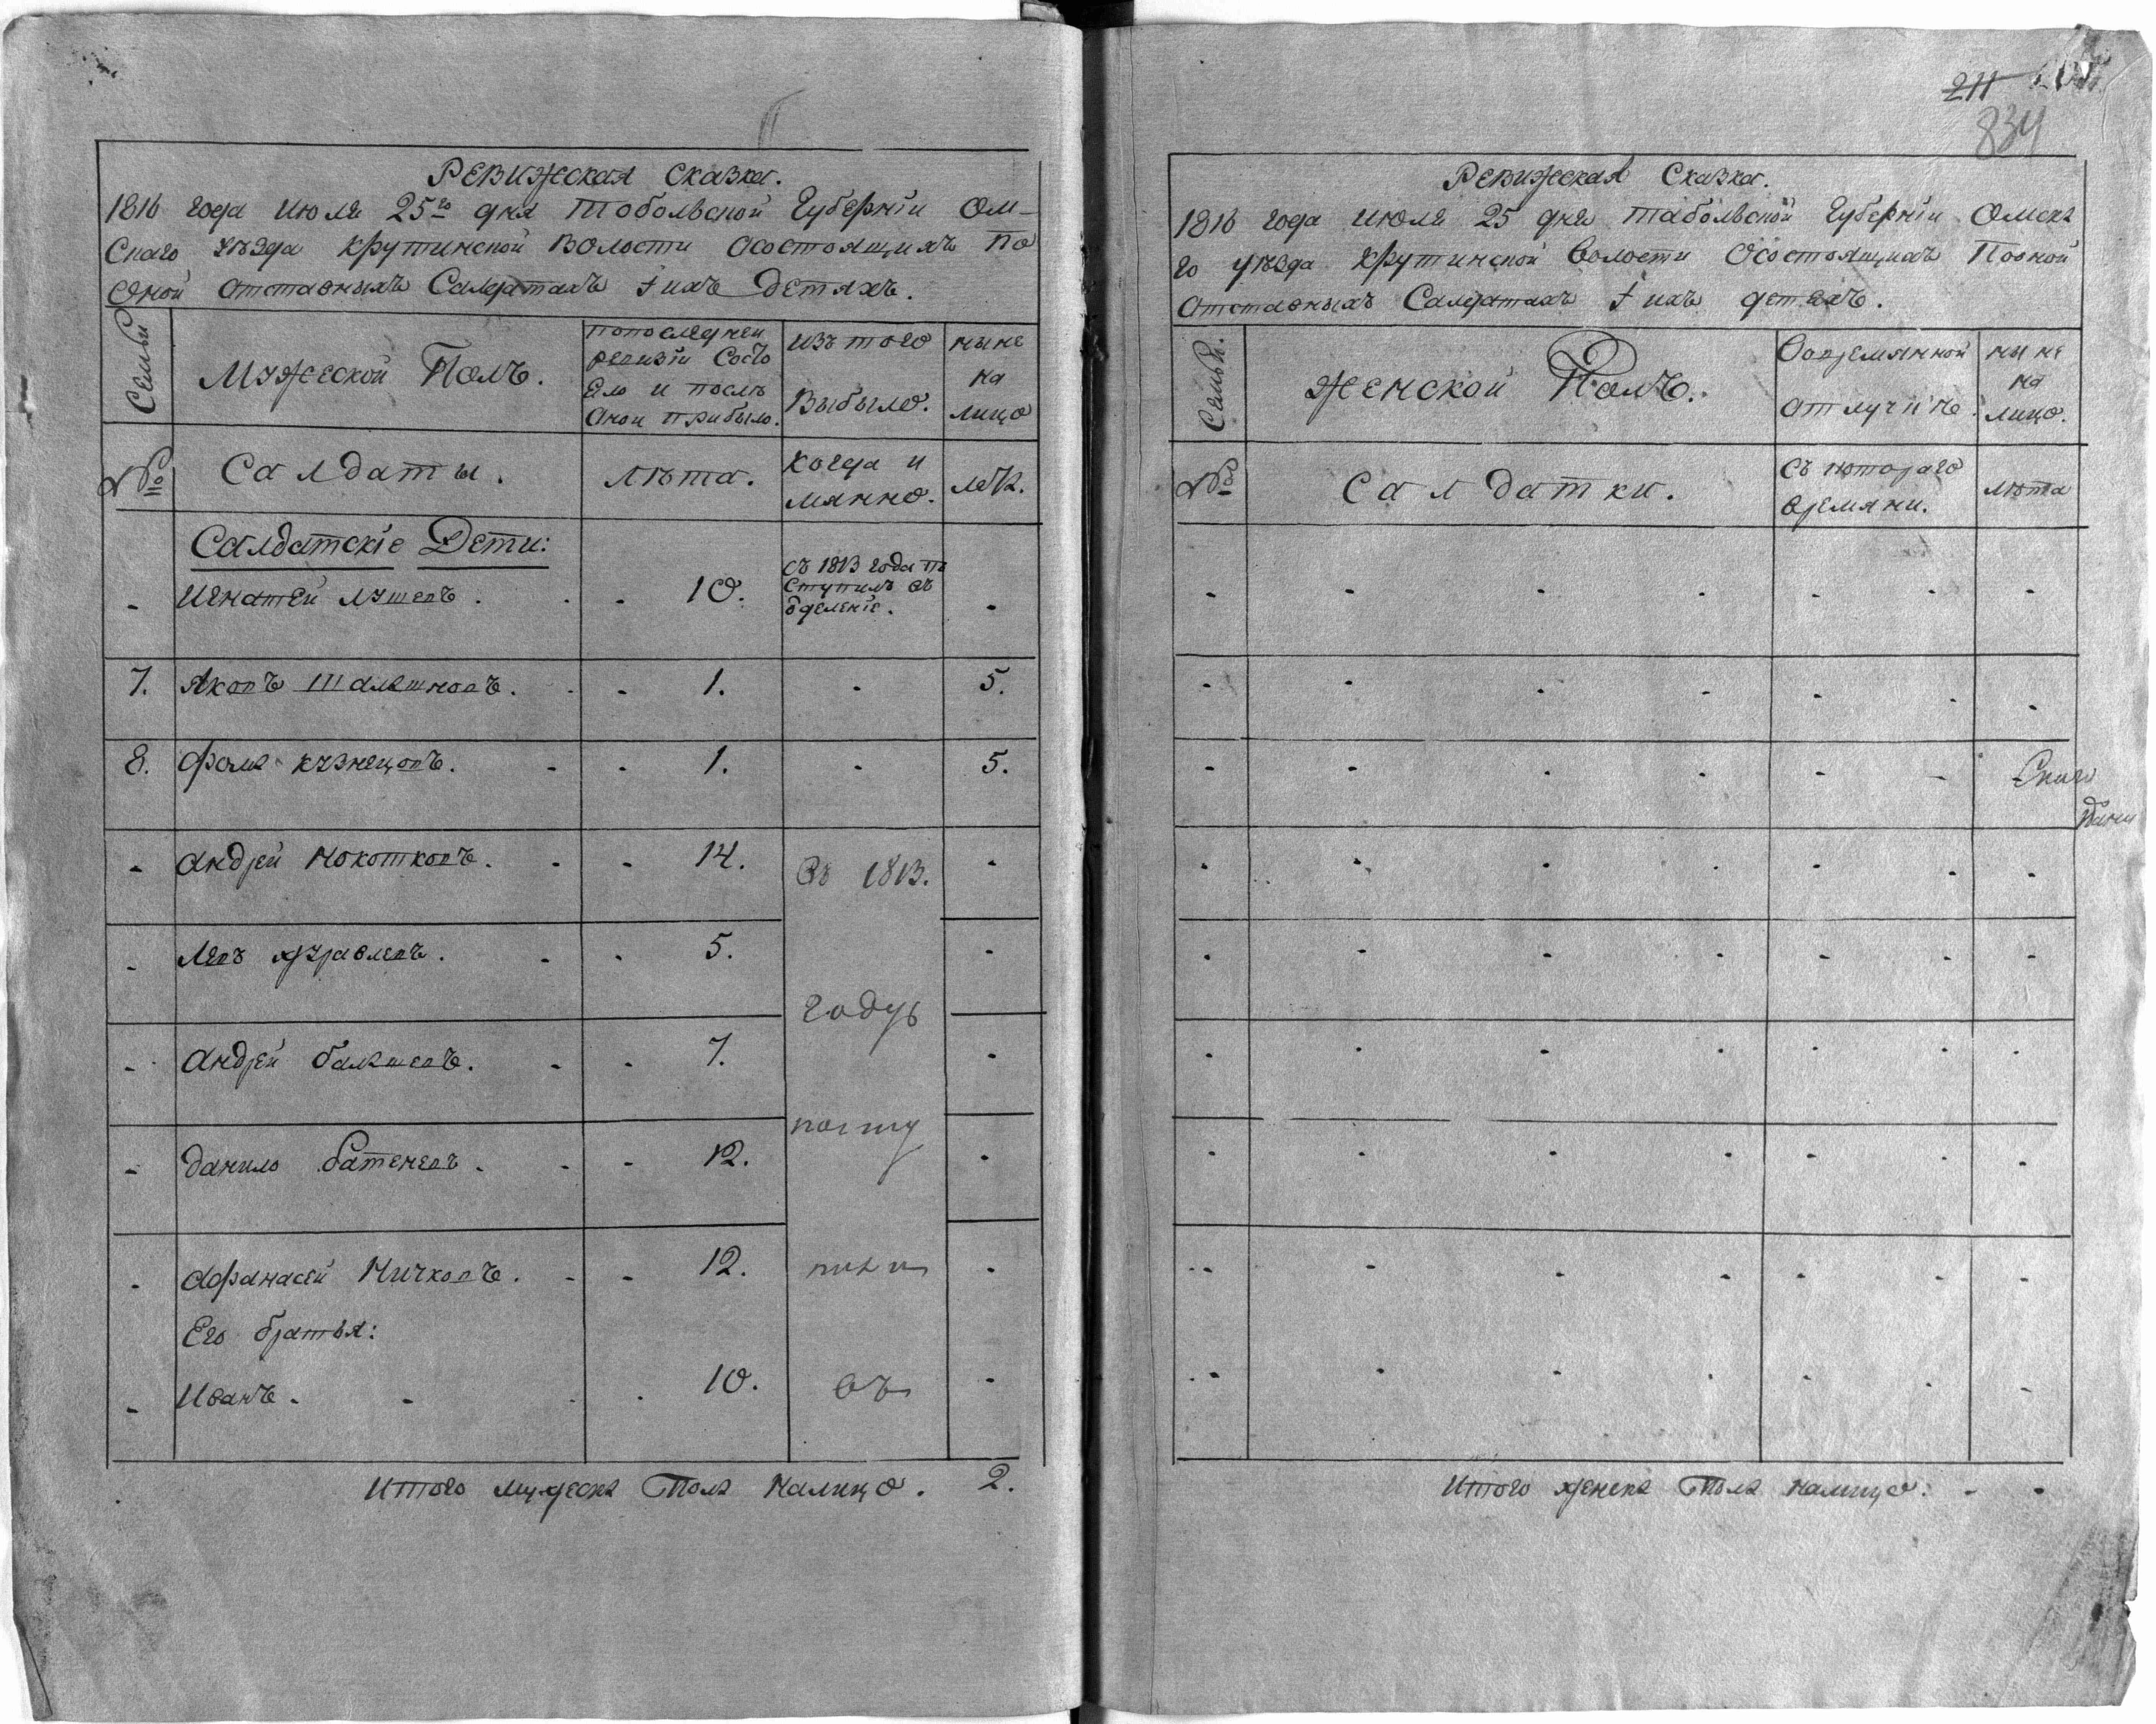 Ревижеская сказка.
1816 года июля 25го дня Тобольской Губерніи Ом-
скаго уѣзда крутинской волости осостоящихъ по
оной отставныхъ Салдатахъ і ихъ Детяхъ.
Семьи
Мужеской Полъ.
попоследней
ревизіи Состо
яло и послѣ
оной прибыло.
изъ того
Выбыло.
ныне
на
лицо
№
Салдаты.
лѣта.
когда и
мянно.
лет.
Салдатскіе Дети:
- Игнатей лушевъ. - - 10. съ 1813 года по
ступилъ въ
Отделеніе. -
7. Яковъ Шалшновъ. - - 1. - 5.
8. Фома кузнецовъ. - - 1. - 5.
- Андрей Нокотковъ. - - 14. Въ 1813. -
- Левъ журавлевъ. - - 5. -
годуь
- Андрей балшевъ. - - 7. -
посту
- Данило батеневъ. - - 12. -
- Афанасей Ничковъ. - - 12. пили -
Его братья:
- Иванъ. - - - 10. въ -
Итого мужеска Пола Налицо. 2.
211
834
Ревижеская Сказка.
1816 года июля 25 дня табольской Губерніи Омска
го уѣзда крутинской волости Осостоящихъ Пооной
отставныхъ Салдатахъ і ихъ детяхъ.
Семьи.
женской Полъ.
Вовремянной
отлучкѣ.
ныне
на
лицо.
№
Салдатки.
съ котораго
времяни.
лѣта
Итого женска Пола налицо. - -